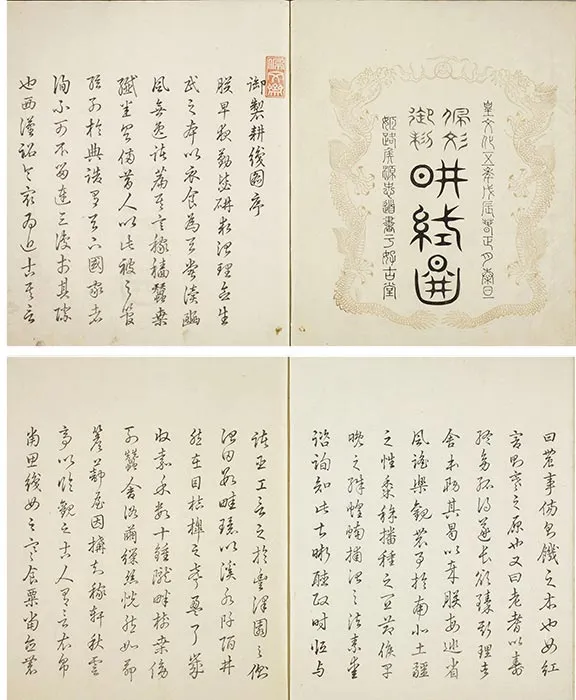 皇文化五年戊辰春正月穀旦
佩文
御製
耕織圖
姬路矦源忠道書于好古堂
御製耕織圖序
朕早夜勤毖研求治理念生
民之本以衣食為天嘗讀豳
風無逸諸篇其言稼穡蠶桑
纖悉具備昔人以此被之管
絃列於典誥有天下國家者
洵不可不留連三復於其際
也西漢詔令最為近古其言
曰農事傷則饑之本也女紅
害則寒之原也又曰老耆以壽
終幼孤得遂長欲臻斯理者
舍本務其曷以哉朕每巡省
風謠樂觀農事於南北土疆
之性黍稌播種之宜節候早
晚之殊蝗蝻捕治之法素愛
諮詢知此甚晰聽政時恒與
諸臣工言之於豐澤園之側
治田數畦環以溪水阡陌井
然在目桔槔之聲盈耳歲
收嘉禾數十鍾隴畔樹桑傍
列蠶舍浴繭繰絲恍然如茆
簷蔀屋因構知稼軒秋雲
亭以臨觀之古人有言衣帛
當思織女之寒食粟當念農